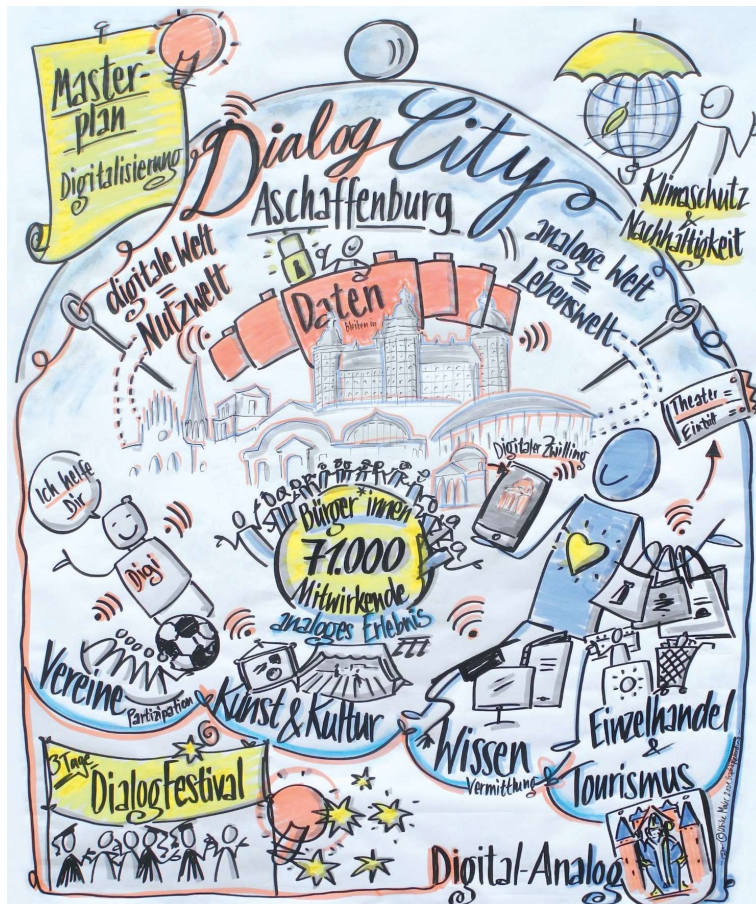 Master-
plan
Digitalisierung
Dialog City
Aschaffenburg
Klimaschutz
&
Nachhaltigkeit
digitale Welt
=
Nutzwelt
analoge Welt
=
Lebenswelt
Daten
bleiben in
Theater =
Eintritt
Digitaler Zwilling
Ich helfe
Dir
Digi
Bürger*innen
71.000
Mitwirkende
analoges Erlebnis
Vereine
Partizipation
Kunst & Kultur
Wissen
Vermittlung
Einzelhandel
&
Tourismus
3 Tage
DialogFestival
Digital-Analog